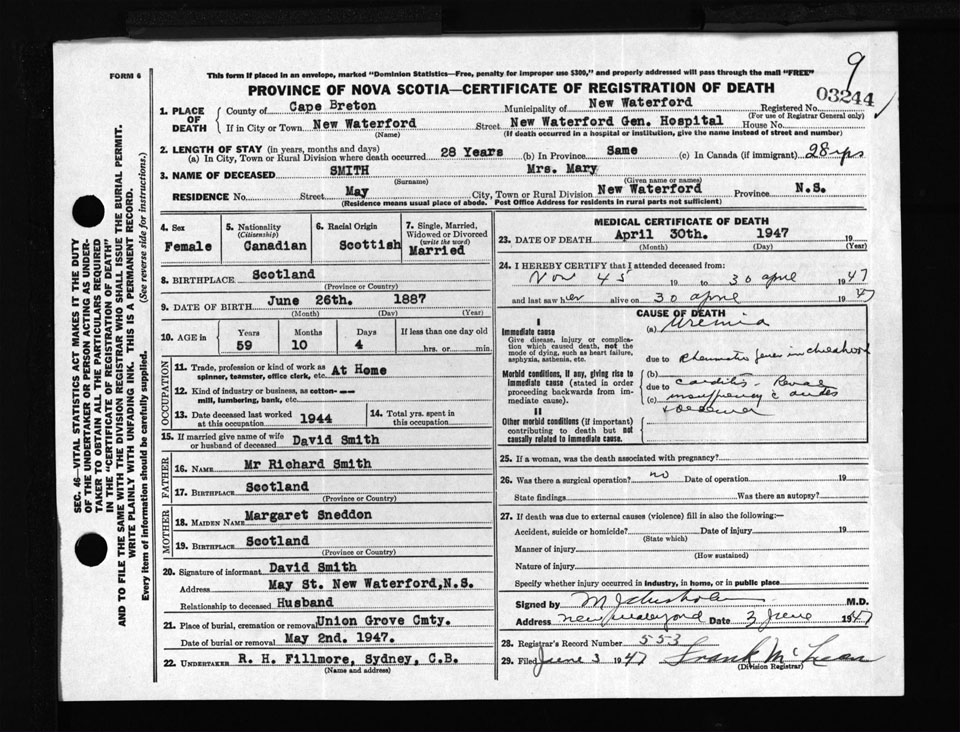 9
FORM 6
This form if placed in an envelope, marked "Dominion Statistics—Free, penalty for improper use $300," and properly addressed will pass through the mail "FREE"
PROVINCE OF NOVA SCOTIA—CERTIFICATE OF REGISTRATION OF DEATH
03244
1. PLACE OF DEATH
County of Cape Breton Municipality of New Waterford Registered No.
(For use of Registrar General only)
If in City or Town New Waterford Street New Waterford Gen. Hospital House No.
(Name) (If death occurred in a hospital or institution, give the name instead of street and number)
2. LENGTH OF STAY (in years, months and days)
(a) In City, Town or Rural Division where death occurred 28 Years (b) In Province Same (c) In Canada (if immigrant) 28 yrs
3. NAME OF DECEASED SMITH Mrs. Mary
(Surname) (Given name or names)
RESIDENCE No. Street May City, Town or Rural Division New Waterford Province N.S.
(Residence means usual place of abode. Post Office Address for residents in rural parts not sufficient)
4. Sex
Female
5. Nationality
(Citizenship)
Canadian
6. Racial Origin
Scottish
7. Single, Married, Widowed or Divorced
(write the word)
Married
8. BIRTHPLACE Scotland
(Province or Country)
9. DATE OF BIRTH June 26th. 1887
(Month) (Day) (Year)
10. AGE in
Years Months Days If less than one day old
59 10 4 hrs. or min.
OCCUPATION
11. Trade, profession or kind of work as
spinner, teamster, office clerk, etc. At Home
12. Kind of industry or business, as cotton-
mill, lumbering, bank, etc.
13. Date deceased last worked
at this occupation 1944
14. Total yrs. spent in
this occupation
15. If married give name of wife
or husband of deceased David Smith
FATHER
16. NAME Mr Richard Smith
17. BIRTHPLACE Scotland
MOTHER
18. MAIDEN NAME Margaret Sneddon
19. BIRTHPLACE Scotland
(Province or Country)
20. Signature of informant David Smith
Address May St. New Waterford,N.S.
Relationship to deceased Husband
21. Place of burial, cremation or removal Union Grove Cmty.
Date of burial or removal May 2nd. 1947.
22. UNDERTAKER R. H. Fillmore, Sydney, C.B.
(Name and address)
MEDICAL CERTIFICATE OF DEATH
23. DATE OF DEATH April 30th. 1947 19
(Month) (Day) (Year)
24. I HEREBY CERTIFY that I attended deceased from:
Nov 45 19 to 30 april 1947
and last saw her alive on 30 april 1947
CAUSE OF DEATH
I
Immediate cause
Give disease, injury or complication which caused death, not the mode of dying, such as heart failure, asphyxia, asthenia, etc.
(a) Uremia
due to Rheumatic fever in childhood
Morbid conditions, if any, giving rise to immediate cause (stated in order proceeding backwards from immediate cause)
(b)
due to carditis - Renal
(c) insufficiency
II
Other morbid conditions (if important) contributing to death but not causally related to immediate cause.
25. If a woman, was the death associated with pregnancy?
26. Was there a surgical operation? no Date of operation 19
State findings Was there an autopsy?
27. If death was due to external causes (violence) fill in also the following:—
Accident, suicide or homicide? Date of injury 19
(State which)
Manner of injury
(How sustained)
Nature of injury
Specify whether injury occurred in industry, in home, or in public place
Signed by M J Chisholm M.D.
Address New Waterford Date 3 June 1947
28. Registrar's Record Number 553
29. Filed June 3 1947 Frank McLean
(Division Registrar)
SEC. 46—VITAL STATISTICS ACT MAKES IT THE DUTY
OF THE UNDERTAKER OR PERSON ACTING AS UNDER-
TAKER TO OBTAIN ALL THE PARTICULARS REQUIRED
IN THE "CERTIFICATE OF REGISTRATION OF DEATH"
AND TO FILE THE SAME WITH THE DIVISION REGISTRAR WHO SHALL ISSUE THE BURIAL PERMIT.
WRITE PLAINLY WITH UNFADING INK. THIS IS A PERMANENT RECORD.
Every item of information should be carefully supplied. (See reverse side for instructions.)